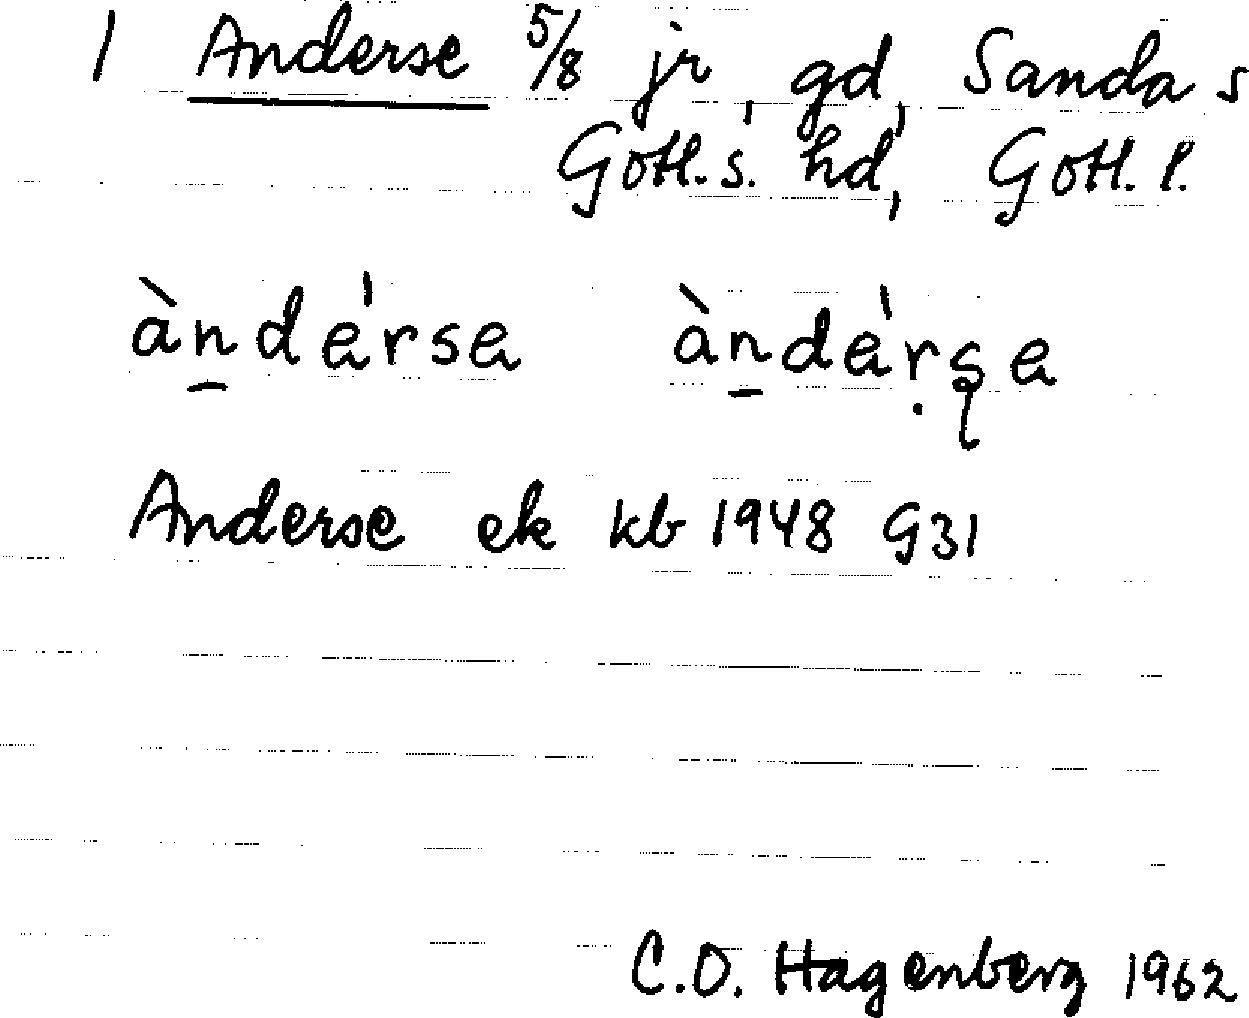 1 Anderse 5/8 jr, gd, Sanda s
Gotl. s. hd, Gotl. l.
àndérse àndérse
Anderse ek kb 1948 G31
C.O. Hagenberg 1962